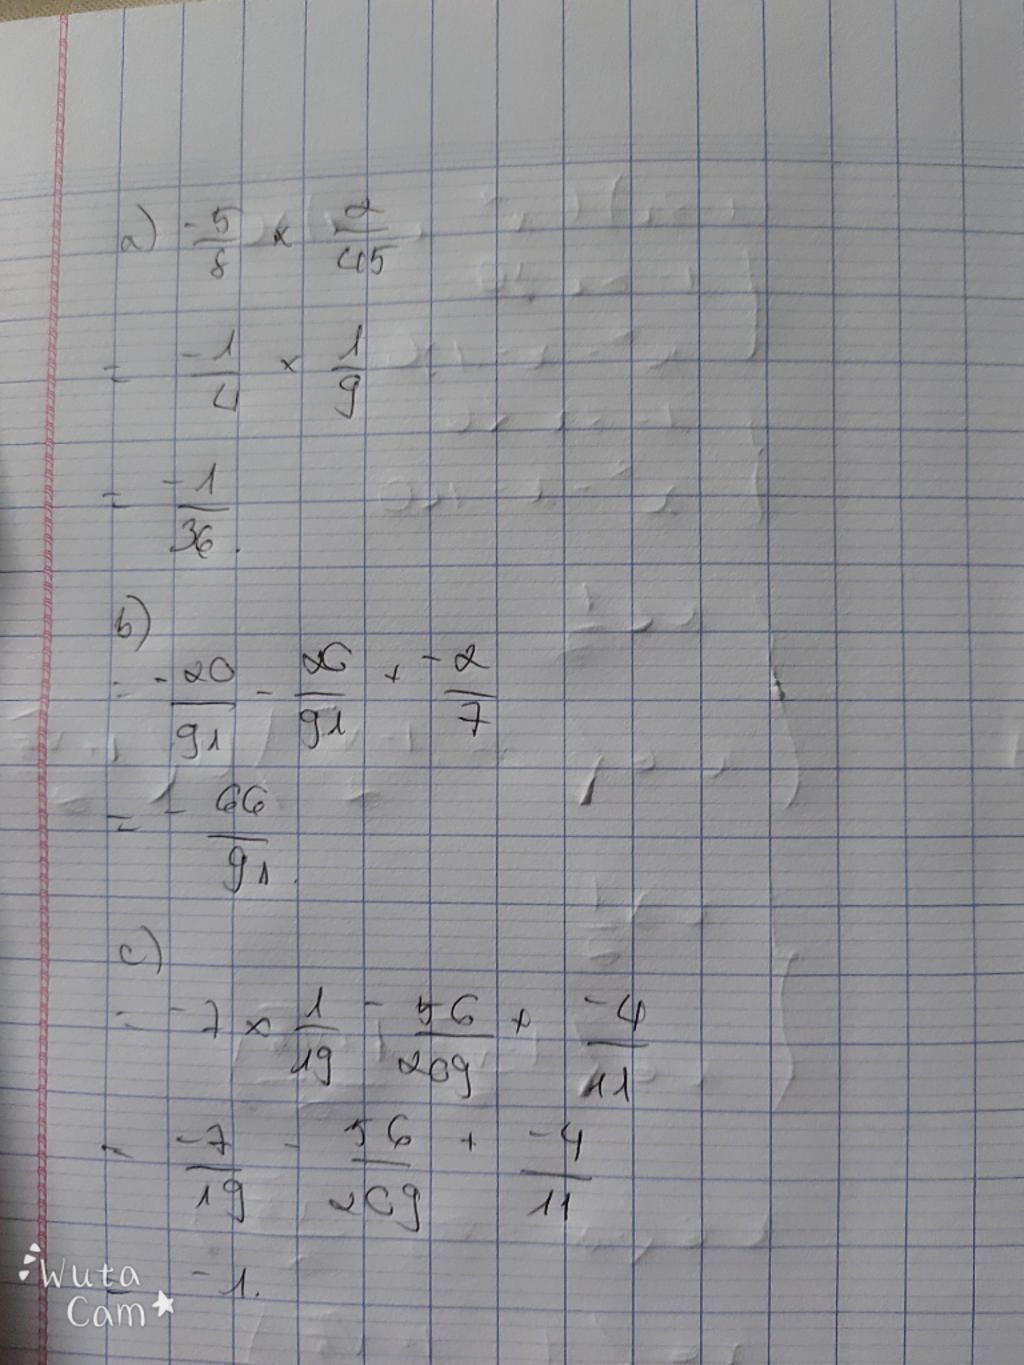 a) -5/8 × 2/45
= -1/4 × 1/9
= -1/36.
b)
= -20/91 - 26/91 + -2/7
= - 66/91.
c)
= -7 × 1/19 - 56/209 + -4/11
= -7/19 - 56/209 + -4/11
= -1.
Wuta
Cam